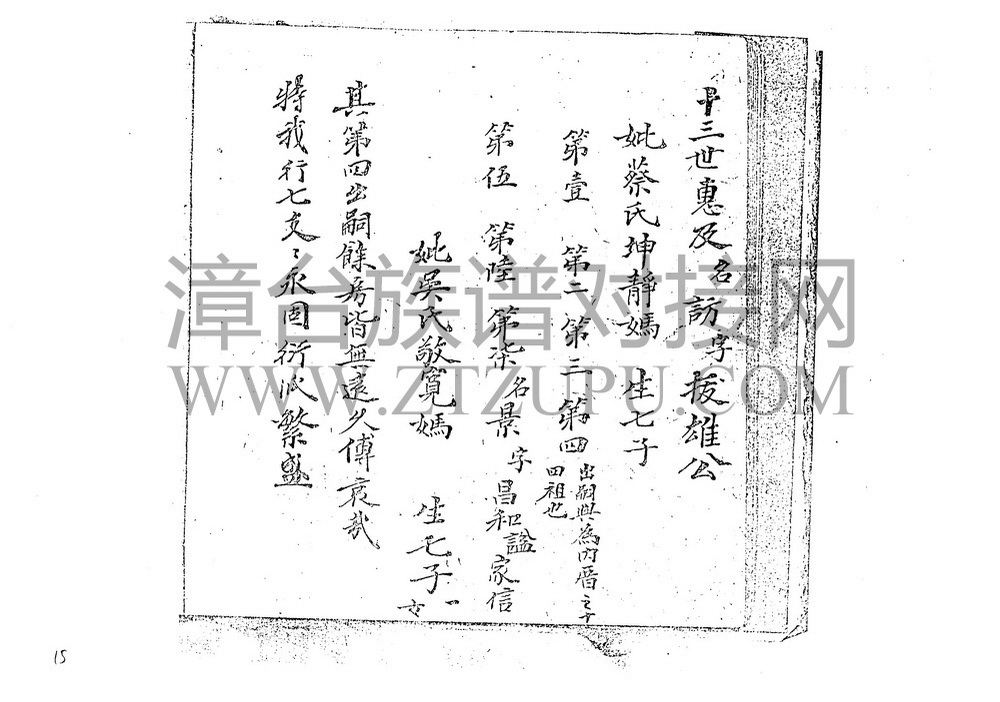 十三世惠及名訪字振雄公
妣蔡氏坤靜媽 生七子
第壹 第二 第三 第四出嗣與為內厝之子
田祖也
第伍 第陸 第柒名景字昌和諡家信
妣吳氏敬寬媽 生七子一女
其第四出嗣餘房皆無遠久傳哀哉
將我行七支〻永固衍派繁盛
漳台族谱对接网
WWW.ZTZUPU.COM
15